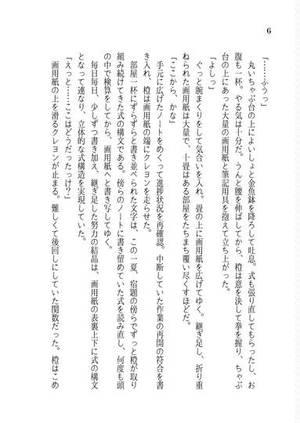 6
「……ふうっ」
丸いちゃぶ台の上によいしょと金魚鉢を降ろして吐息。式も張り直してもらったし、お
腹も一杯。やる気は十分だ。うんと腰を伸ばしてから、橙は意を決して拳を握り、ちゃぶ
台の上にあった大量の画用紙と筆記用具を抱えて立ち上がった。
「よしっ」
ぐっと腕まくりをして気合いを入れ、畳の上に画用紙を広げてゆく。継ぎ足し、折り重
ねられた画用紙は大量で、十畳はある部屋をたちまち覆い尽くすほどだ。
「ここから、かな」
手元に広げたノートをめくって進捗状況を再確認。中断していた作業の再開の符合を書
き入れ、橙は画用紙の端にクレヨンを走らせた。
部屋一杯にずらずらと書き並べられた文字は、この一夏、宿題の傍らでずっと橙が取り
組み続けてきた式の構文である。傍らのノートに書き留めていた式を読み直し、何度も頭
の中で検算をしてから、画用紙へと書き写してゆく。
毎日毎日、少しずつ書き加え、継ぎ足した努力の結晶は、画用紙の表裏上下に式の構文
となって連なり、立体的な式構造を実現していた。
「えっと……ここはどうだったっけ?」
画用紙の上を滑るクレヨンが止まる。難しくて後回しにしていた関数だった。橙はこめ